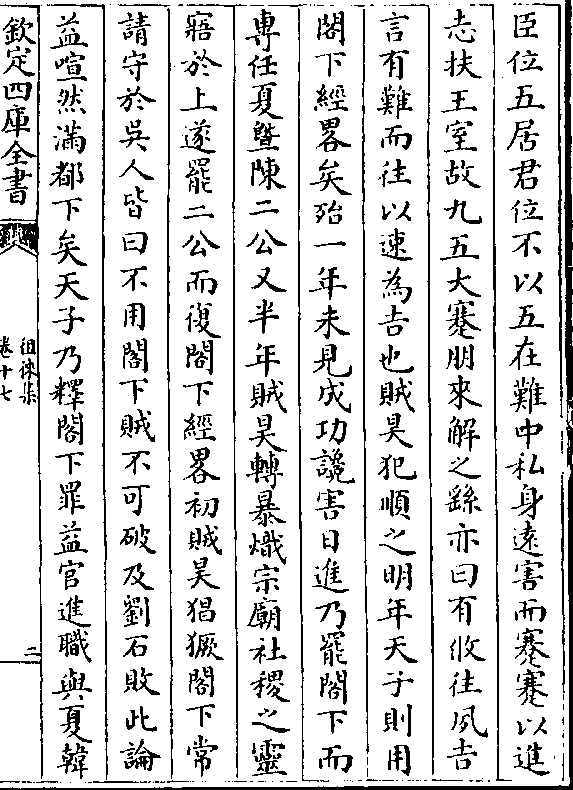 臣位五居君位不以五在難中私身遠害而蹇蹇以進
志扶王室故九五大蹇朋來解之繇亦曰有攸往夙吉
言有難而往以速為吉也賊昊犯順之明年天子則用
閤下經畧矣殆一年未見成功讒害日進乃罷閤下而
專任夏暨陳二公又半年賊昊轉暴熾宗廟社稷之靈
寤於上遂罷二公而復閤下經畧初賊昊猖獗閤下常
請守於吳人皆曰不用閤下賊不可破及劉石敗此論
益喧然滿都下矣天子乃釋閤下罪益官進職與夏韓
欽定四庫全書
徂徠集
卷十七
二